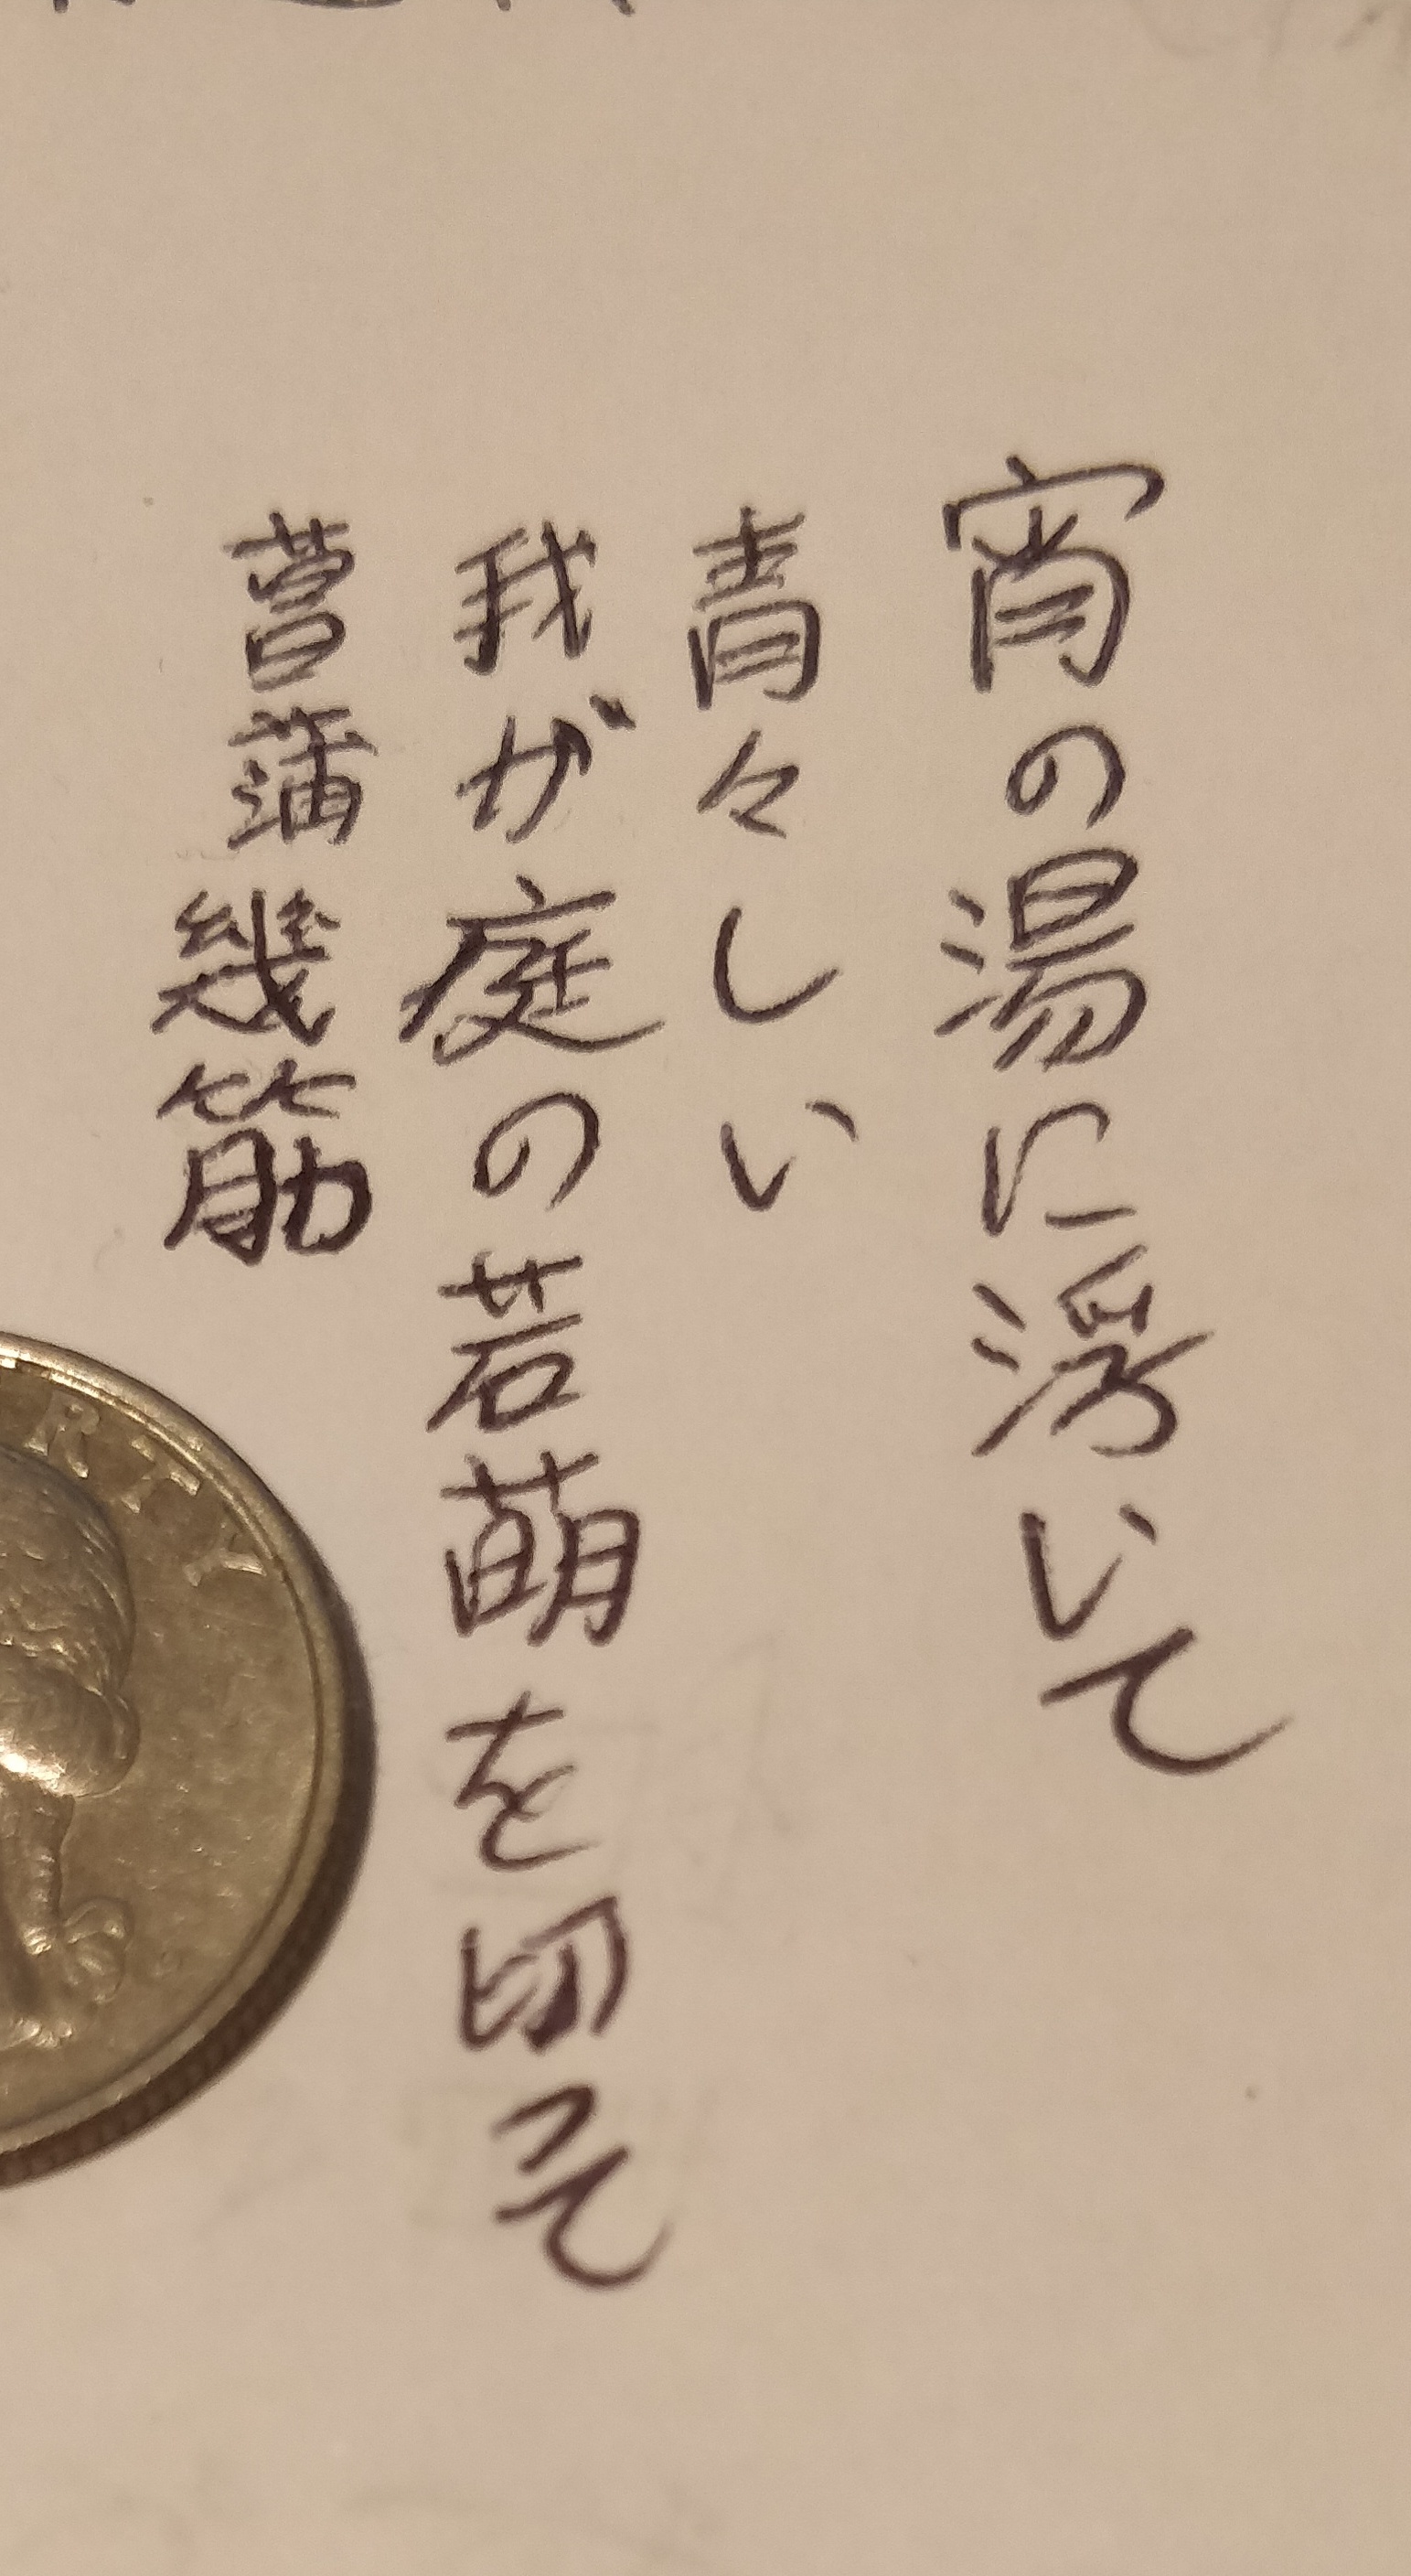 宵の湯に浮いて
青々しい
我が庭の若萌を切って
菖蒲幾筋
RTY